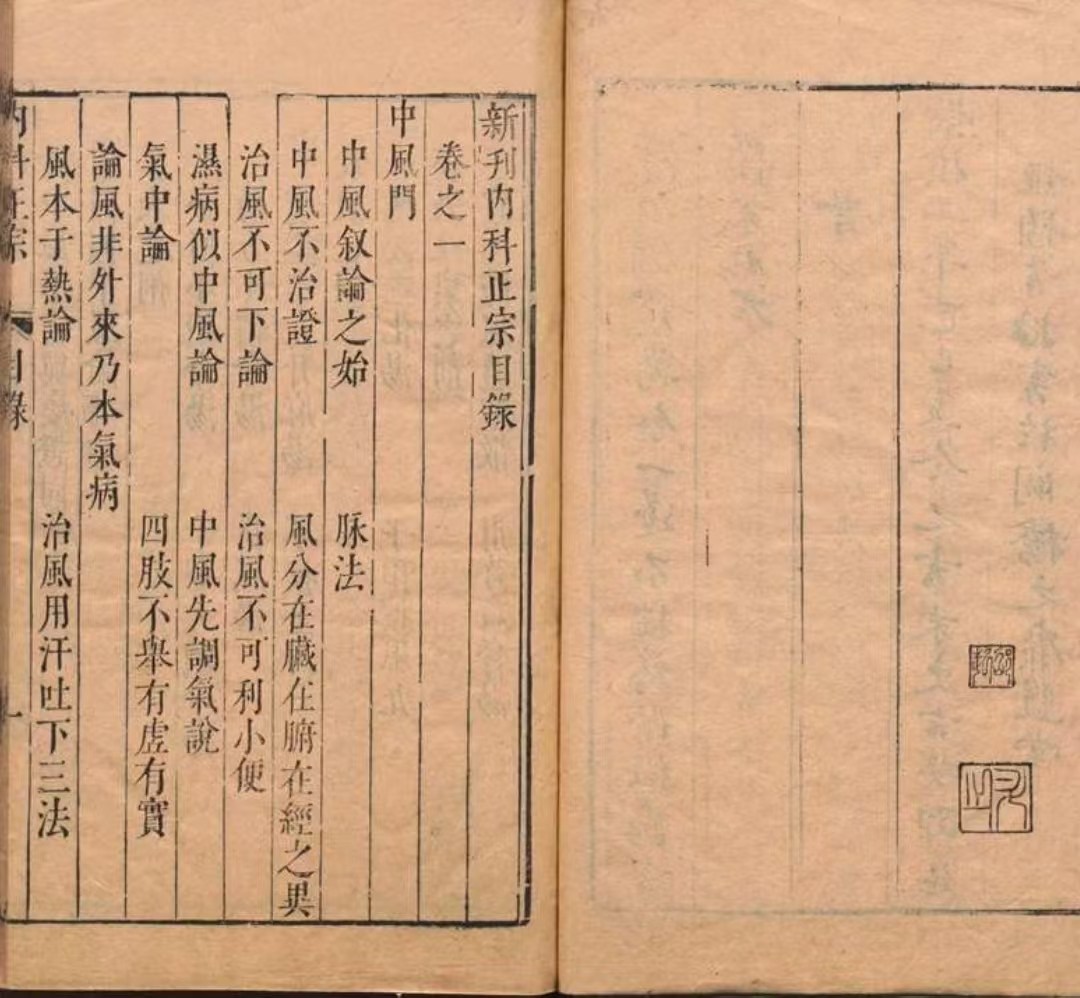 新刊內科正宗目錄
卷之一
中風門
中風叙論之始 脉法
中風不治證 風分在臟在腑在經之異
治風不可下論 治風不可利小便
濕病似中風論 中風先調氣說
氣中論 四肢不舉有虛有實
論風非外來乃本氣病
風本于熱論 治風用汗吐下三法
內科正宗 目錄 一